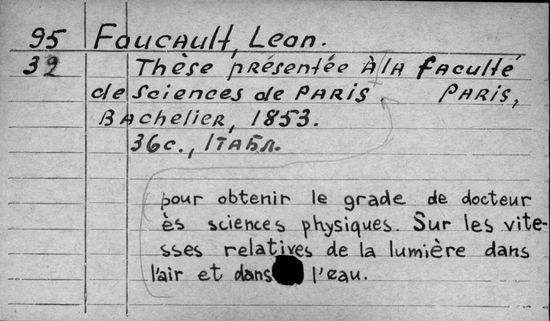 95 Foucault, Leon.
39 Thèse présentée à la Faculté
de Sciences de Paris. Paris,
Bachelier, 1853.
36с., 1табл.
pour obtenir le grade de docteur
ès sciences physiques. Sur les vite-
sses relatives de la lumière dans
l'air et dans l'eau.